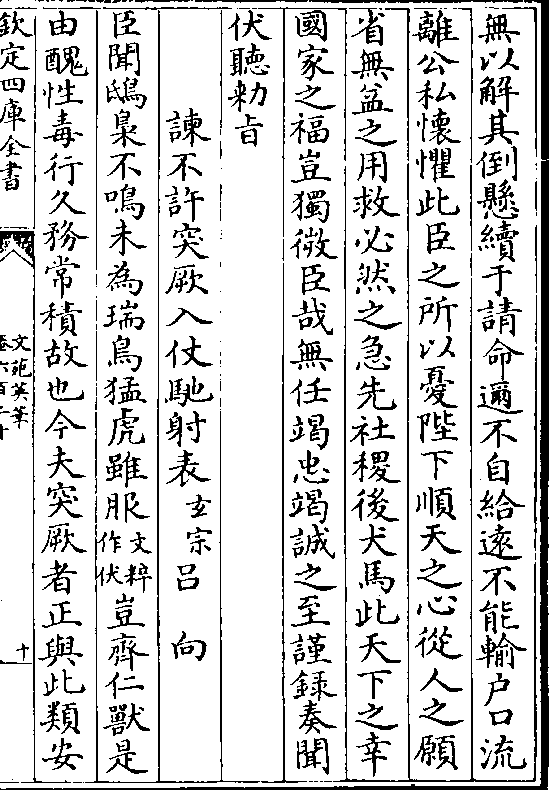 無以解其倒懸續于請命邇不自給遠不能輸户口流
離公私懷懼此臣之所以憂陛下順天之心從人之願
省無益之用救必然之急先社稷後犬馬此天下之幸
國家之福豈獨微臣哉無任竭忠竭誠之至謹録奏聞
伏聽勑旨
諫不許突厥入仗馳射表玄宗 吕向
臣聞鴟梟不鳴未為瑞鳥猛虎雖服文粹作伏豈齊仁獸是
由醜性毒行久務常積故也今夫突厥者正與此類安
欽定四庫全書
文苑英華
卷六百二十
十